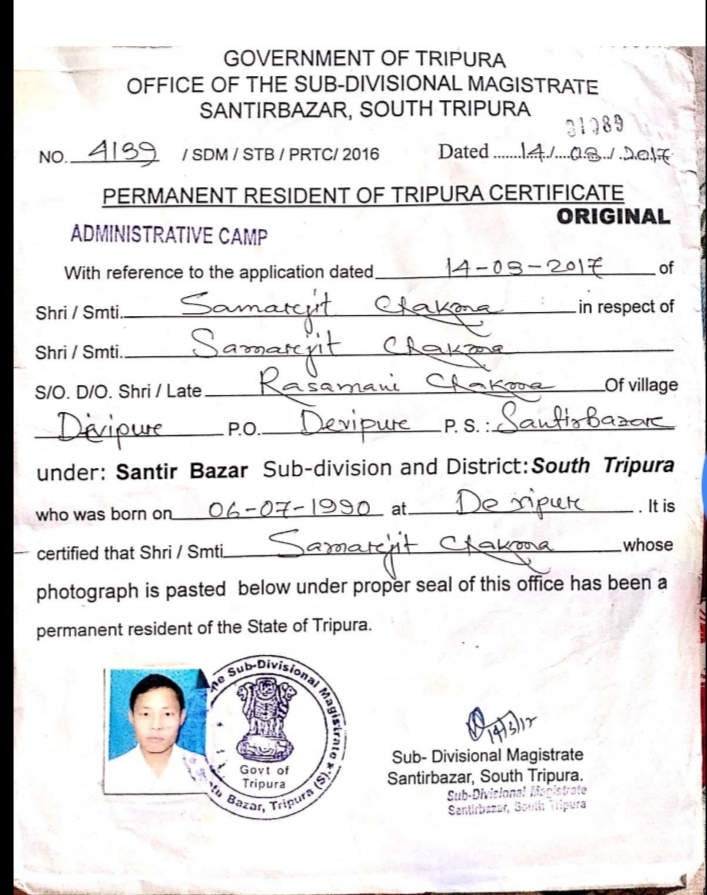 GOVERNMENT OF TRIPURA
OFFICE OF THE SUB-DIVISIONAL MAGISTRATE
SANTIRBAZAR, SOUTH TRIPURA
NO. 4139 / SDM / STB / PRTC/ 2016 Dated ......14./....03../.2017
PERMANENT RESIDENT OF TRIPURA CERTIFICATE
ORIGINAL
ADMINISTRATIVE CAMP
With reference to the application dated 14-03-2017 of
Shri / Smti. Samarejit Chakma in respect of
Shri / Smti. Samarejit Chakma
S/O. D/O. Shri / Late Rasamani Chakma Of village
Devipure P.O. Devipure P. S. : Santirbazar
under: Santir Bazar Sub-division and District: South Tripura
who was born on 06-07-1990 at Devipure . It is
certified that Shri / Smti Samarejit Chakma whose
photograph is pasted below under proper seal of this office has been a
permanent resident of the State of Tripura.
Sub-Divisional Magistrate
Govt of
Tripura
Bazar, Tripura (S).*
14/3/17
Sub- Divisional Magistrate
Santirbazar, South Tripura.
Sub-Divisional Magistrate
Santirbazar, South Tripura